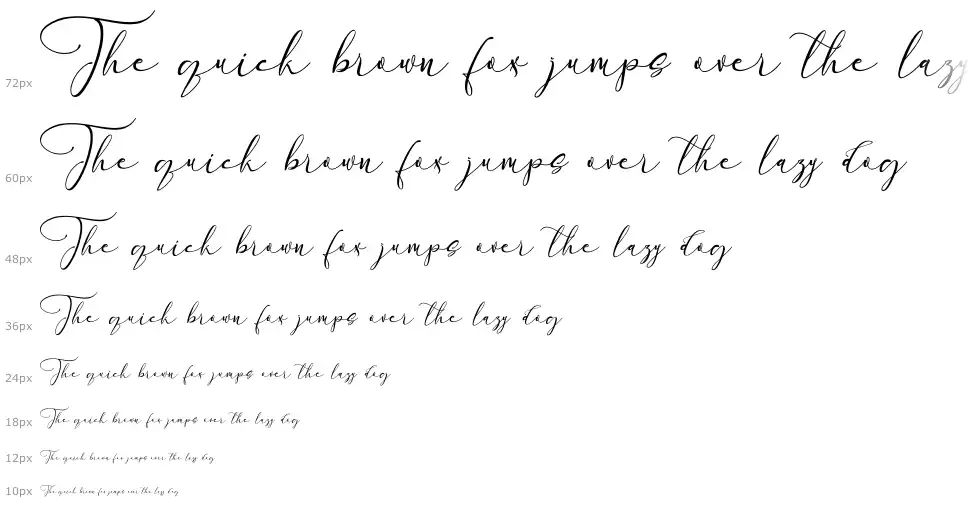 72px The quick brown fox jumps over the lazy
60px The quick brown fox jumps over the lazy dog
48px The quick brown fox jumps over the lazy dog
36px The quick brown fox jumps over the lazy dog
24px The quick brown fox jumps over the lazy dog
18px The quick brown fox jumps over the lazy dog
12px The quick brown fox jumps over the lazy dog
10px The quick brown fox jumps over the lazy dog